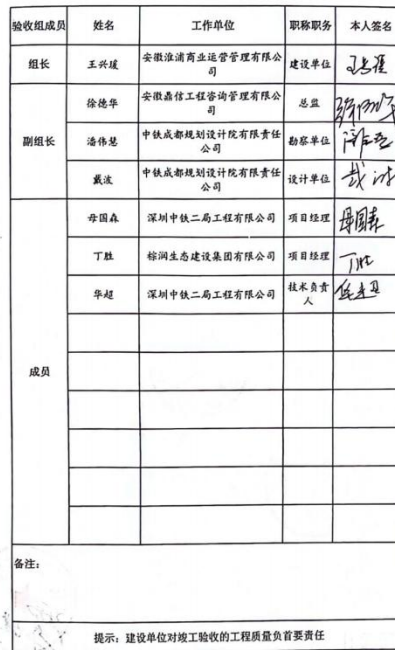 验收组成员 姓名 工作单位 职称职务 本人签名
组长 王兴瑾 安徽淮浦商业运营管理有限公
司 建设单位
副组长 徐德华 安徽鼎信工程咨询管理有限
公司 总监
潘伟慧 中铁成都规划设计院有限责任
公司 勘察单位
戴波 中铁成都规划设计院有限责任
公司 设计单位 戴波
成员 母国森 深圳中铁二局工程有限公司 项目经理 母国森
丁胜 棕润生态建设集团有限公司 项目经理 丁胜
华超 深圳中铁二局工程有限公司 技术负责
人
备注：
提示：建设单位对竣工验收的工程质量负首要责任